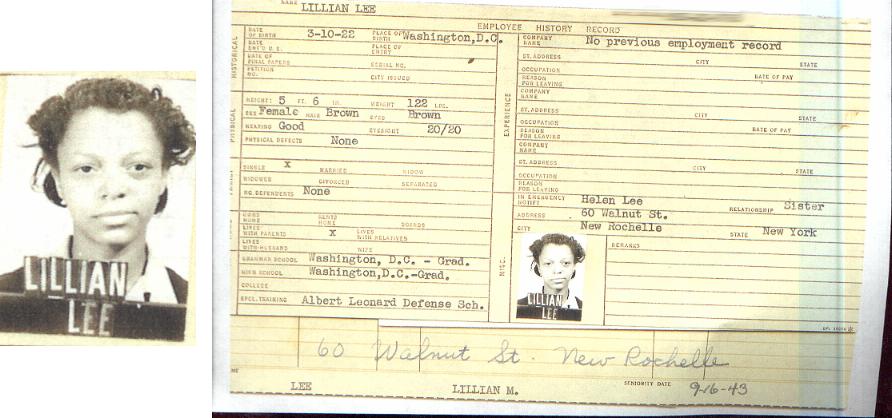 LILLIAN
LEE
NAME LILLIAN LEE
EMPLOYEE HISTORY RECORD
HISTORICAL
DATE OF BIRTH 3-10-22 PLACE OF BIRTH Washington,D.C.
DATE ENT'D U.S. PLACE OF ENTRY
DATE OF FINAL PAPERS SERIAL NO.
PETITION NO. CITY ISSUED
PHYSICAL
HEIGHT: 5 FT. 6 IN. WEIGHT 122 LBS.
SEX Female HAIR Brown EYES Brown
HEARING Good EYESIGHT 20/20
PHYSICAL DEFECTS None
SINGLE X MARRIED WIDOW
WIDOWER DIVORCED SEPARATED
NO. DEPENDENTS None
OWNS HOME RENTS HOME BOARDS
LIVES WITH PARENTS X LIVES WITH RELATIVES
LIVES WITH HUSBAND WIFE
GRAMMAR SCHOOL Washington, D.C. - Grad.
HIGH SCHOOL Washington,D.C.-Grad.
COLLEGE
SPCL. TRAINING Albert Leonard Defense Sch.
EXPERIENCE
COMPANY NAME No previous employment record
ST. ADDRESS CITY STATE
OCCUPATION RATE OF PAY
REASON FOR LEAVING
COMPANY NAME
ST. ADDRESS CITY STATE
OCCUPATION RATE OF PAY
REASON FOR LEAVING
COMPANY NAME
ST. ADDRESS CITY STATE
OCCUPATION
REASON FOR LEAVING
MISC.
IN EMERGENCY NOTIFY Helen Lee RELATIONSHIP Sister
ADDRESS 60 Walnut St.
CITY New Rochelle STATE New York
REMARKS
LILLIAN
LEE
60 Walnut St. New Rochelle
LEE LILLIAN M. SENIORITY DATE 9-16-43